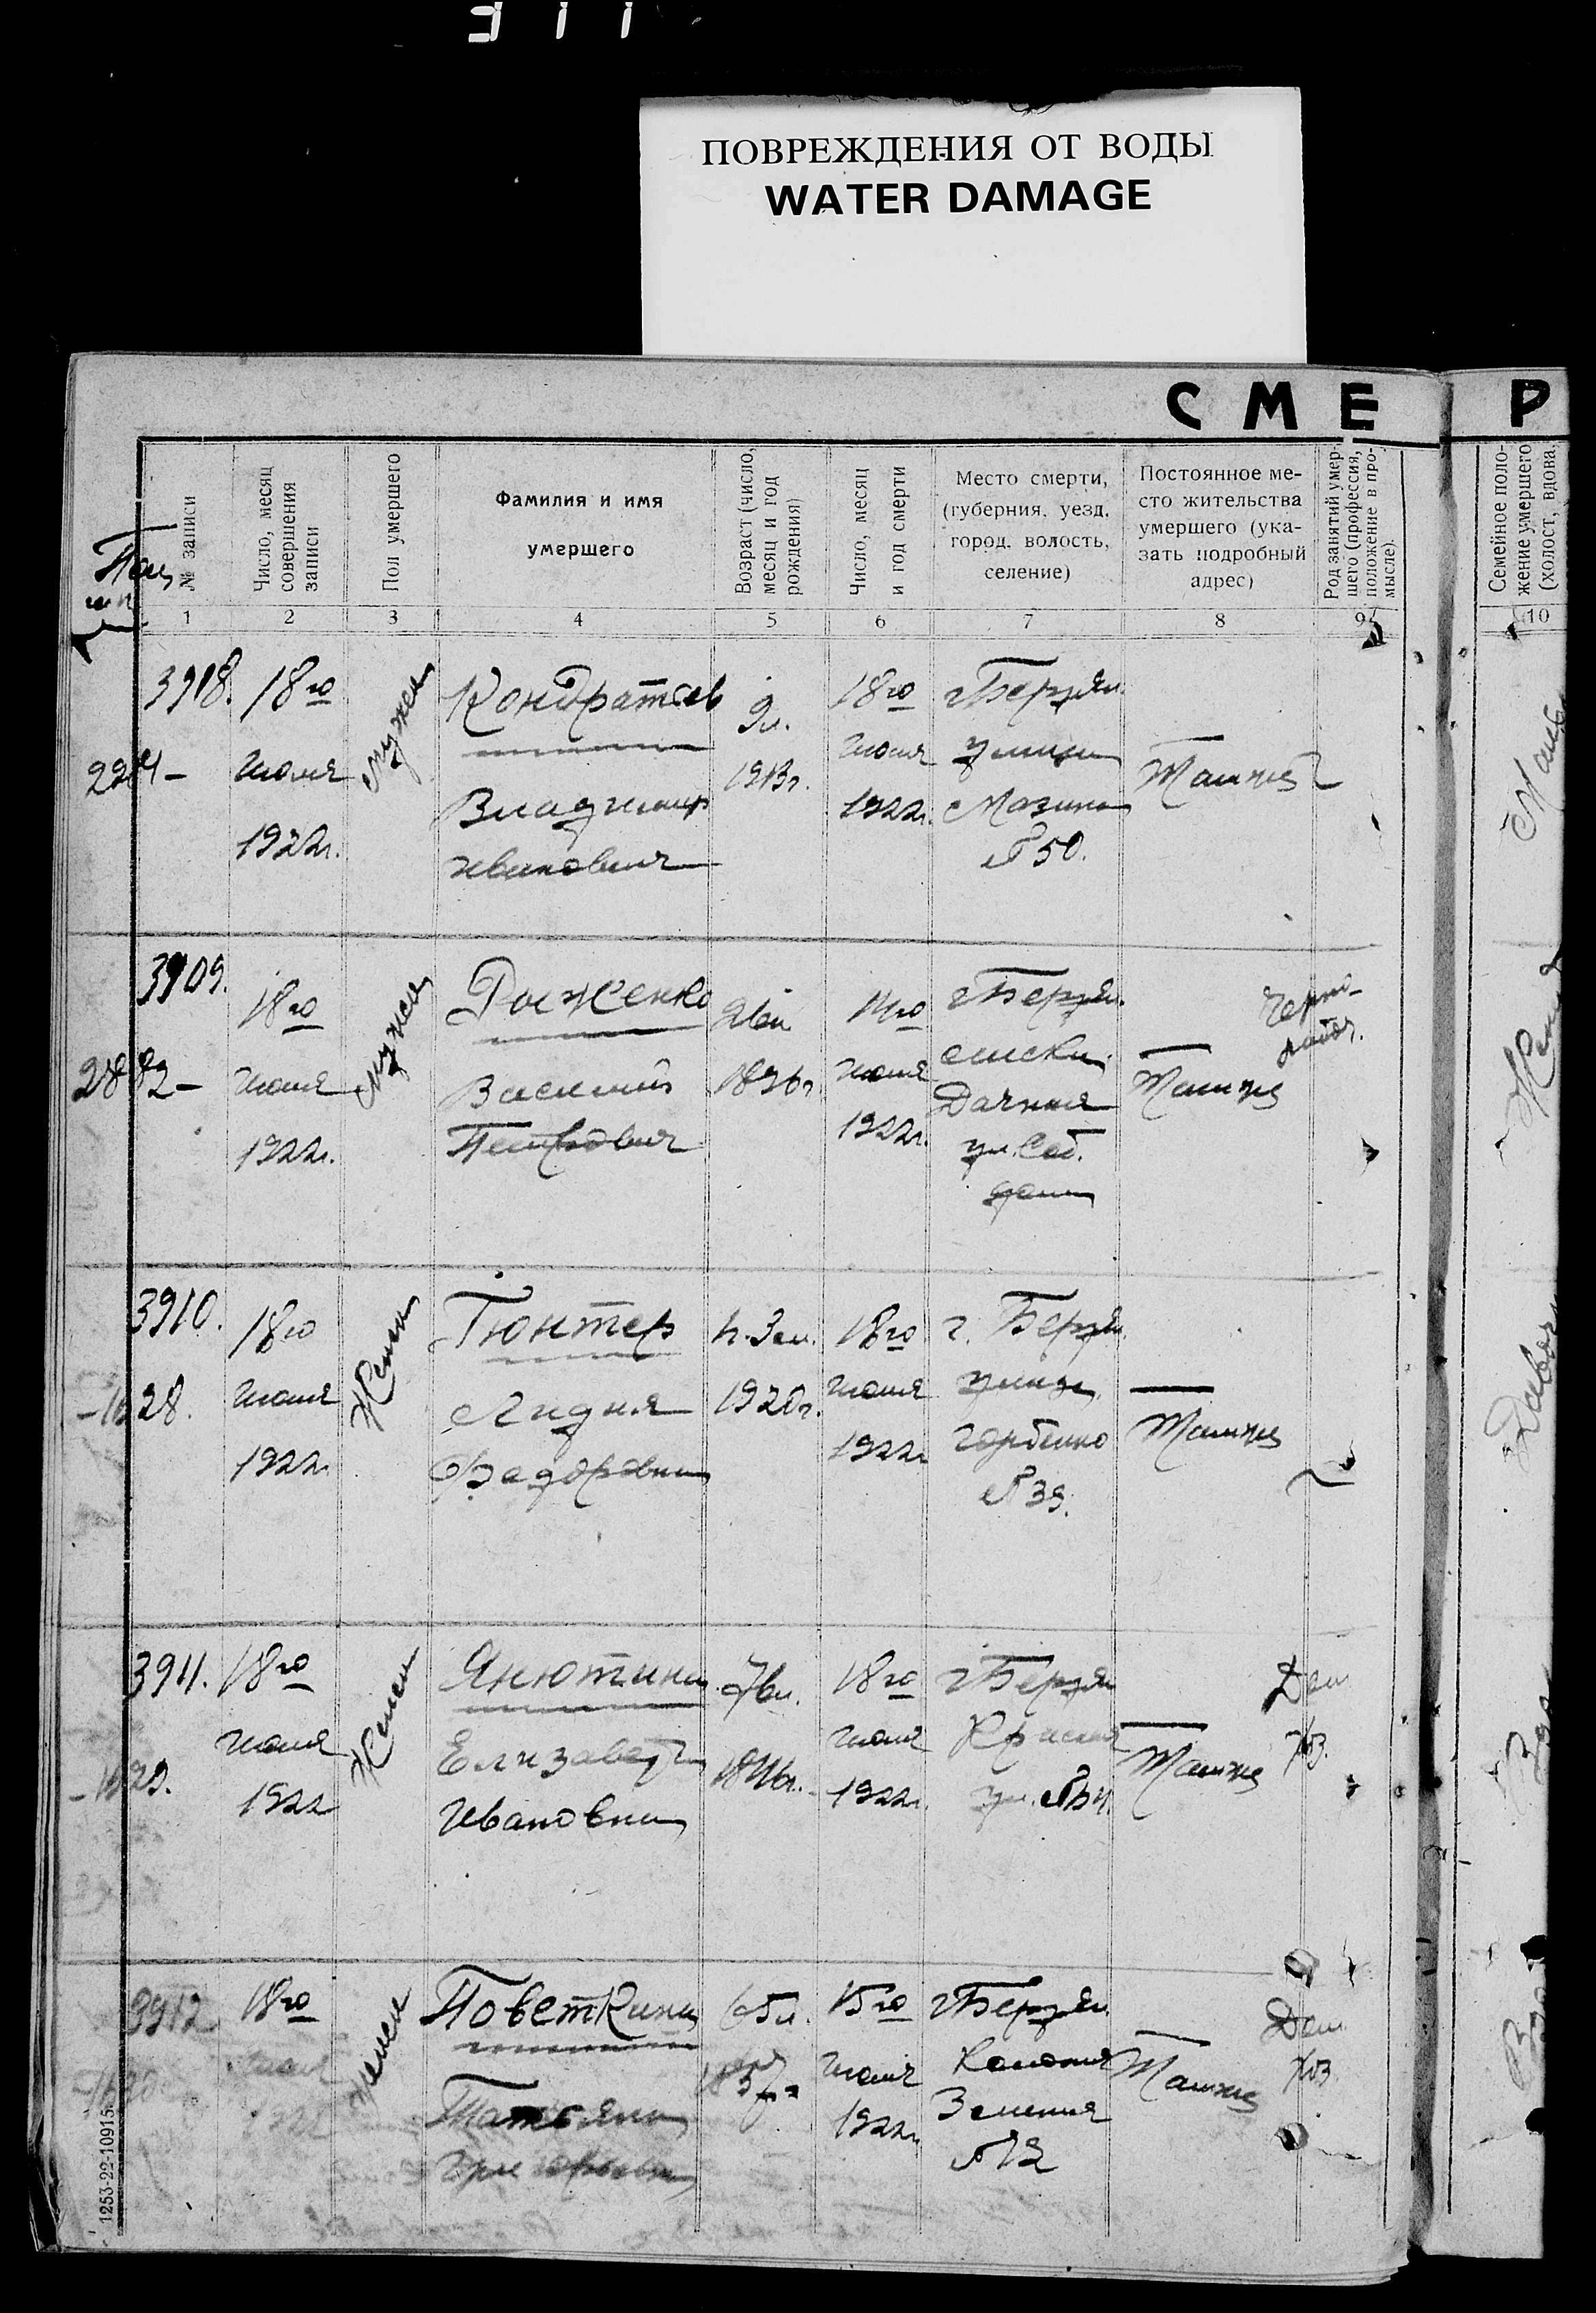 311
ПОВРЕЖДЕНИЯ ОТ ВОДЫ
WATER DAMAGE
СМЕ Р
№ записи
Число, месяц
совершения
записи
Пол умершего
Фамилия и имя
умершего
Возраст (число,
месяц и год
рождения)
Число, месяц
и год смерти
Место смерти,
(губерния, уезд,
город, волость,
селение)
Постоянное ме-
сто жительства
умершего (ука-
зать подробный
адрес)
Род занятий умер-
шего (профессия,
положение в про-
мысле).
Семейное поло-
жение умершего
(холост, вдова,
1 2 3 4 5 6 7 8 9 10
18го
июля
1922г.
мужск
Кондратьев
Владимир
Иванович
9л.
1913г.
18го
июля
1922г.
г Бердян.
улица
Мазина
№ 50.
Там же
3909.
18го
июля
1922г.
мужск
Рыженко
Василий
Петрович
26л.
1896г
июля
1922г.
г Бердян.
Дачная
ул. Соб.
дом
Там же
Черно-
рабоч.
3910.
28.
18го
июля
1922г
Женск
Гюнтер
Лидия
Федоровна
1920г.
18го
июля
1922г
г. Бердян.
улица
Горбенко
№ 39.
Там же
3911.
18го
июля
1922
Женск
Янютина
Елизавета
Ивановна
76л.
1846г.
18го
июля
1922г.
г Бердян
Красная
ул.
Там же
Дом
хоз.
3912
18го
женск
Поветкина
Татьяна
65л.
1857г
15го
июля
1922г.
г Бердян.
Колония
Зеленая
№ 12
Там же
Дом
хоз
1253-22-10915